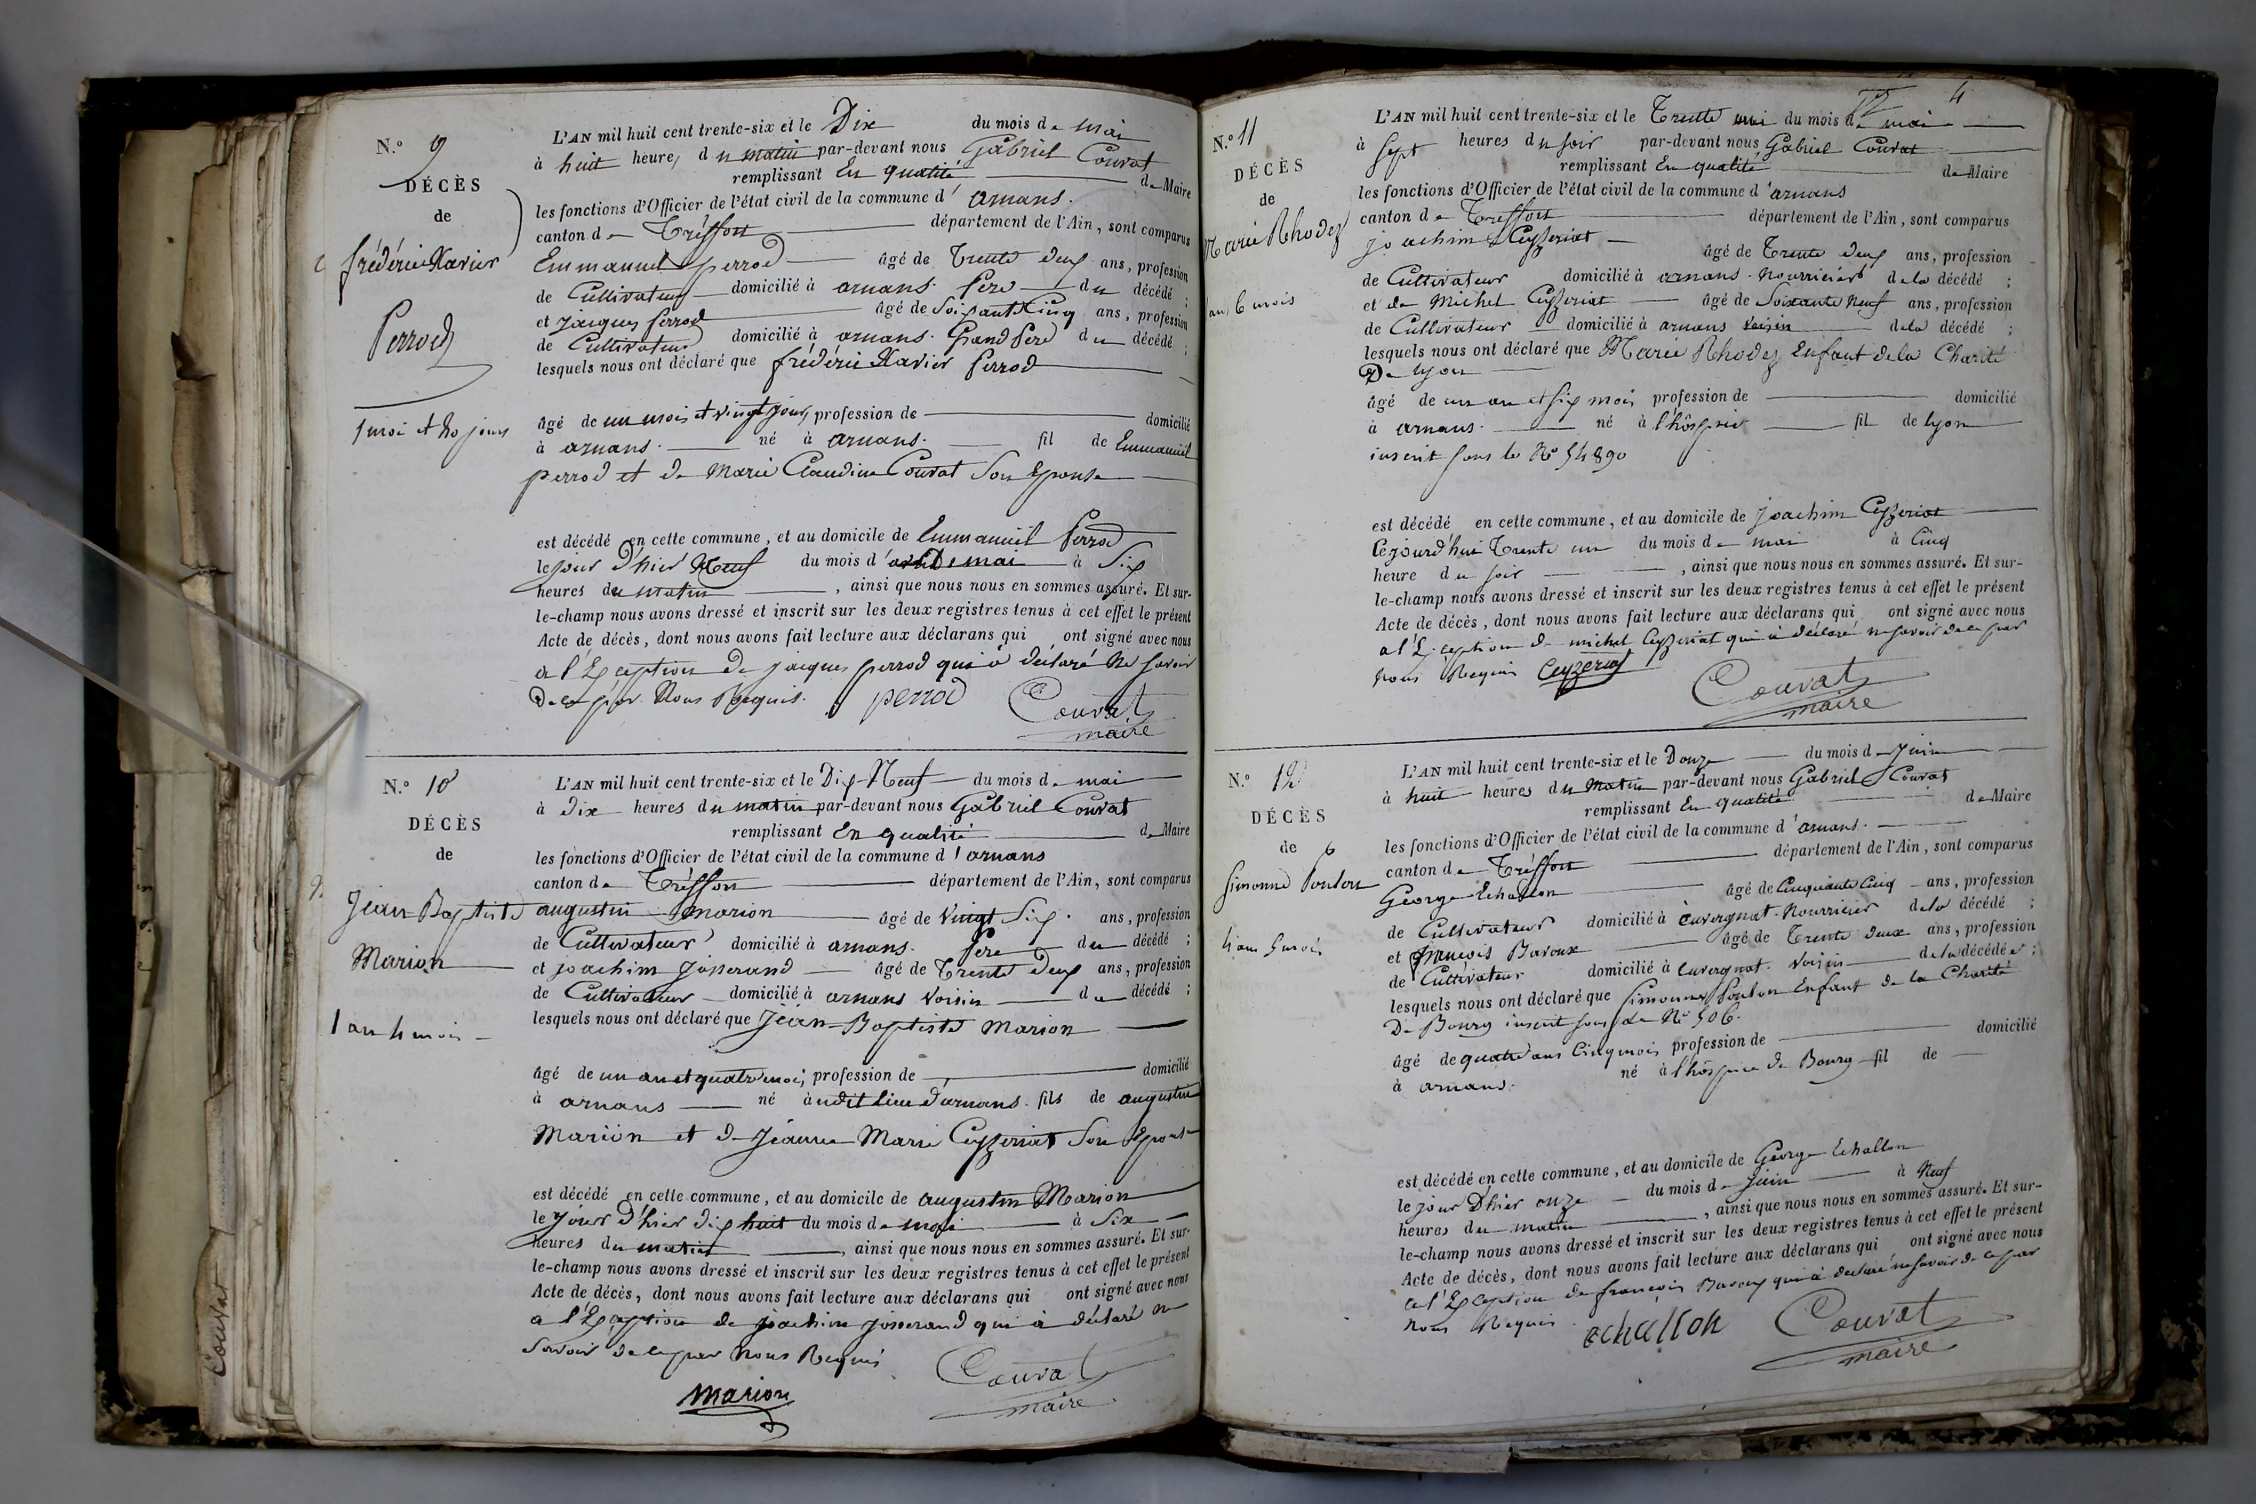 N.º 9
DÉCÈS
de
frédéric Xavier
Perrod
1 moi et 20 jours
L'AN mil huit cent trente-six et le Dix du mois de mai
à huit heures du matin par-devant nous Gabriel Couvat
remplissant En qualité de Maire
les fonctions d'Officier de l'état civil de la commune d'arnans.
canton de Tréffort département de l'Ain, sont comparus
Emmanuel perrod âgé de Trente deux ans, profession
de Cultivateur domicilié à arnans. Pere du décédé ;
et jacques perrod âgé de Soixante Cinq ans, profession
de Cultivateur domicilié à arnans. Grand Pere du décédé ;
lesquels nous ont déclaré que frédéric Xavier Perrod
âgé de un mois et vingt jours profession de domicilié
à arnans. né à arnans. fil de Emmanuel
perrod et de Marie Claudine Couvat Son Epouse
est décédé en cette commune, et au domicile de Emmanuel Perrod
le jour d'hier Neuf du mois d De mai à Six
heures du matin, ainsi que nous nous en sommes assuré. Et sur-
le-champ nous avons dressé et inscrit sur les deux registres tenus à cet effet le présent
Acte de décès, dont nous avons fait lecture aux déclarans qui ont signé avec nous
a l'Exception de jacques perrod qui à déclaré Ne savoir
De ce par Nous Requis. perrod Couvat
maire
N.º 10
DÉCÈS
de
Jean Baptiste
Marion
1 an 4 mois
L'AN mil huit cent trente-six et le Dix-Neuf du mois de mai
à Dix heures du matin par-devant nous Gabriel Couvat
remplissant En qualité de Maire
les fonctions d'Officier de l'état civil de la commune d'arnans
canton de Tréffort département de l'Ain, sont comparus
augustin marion âgé de vingt Six. ans, profession
de Cultivateur domicilié à arnans. Pere du décédé ;
et joachim josserand âgé de Trente Deux ans, profession
de Cultivateur domicilié à arnans voisin du décédé ;
lesquels nous ont déclaré que Jean-Baptiste Marion
âgé de un an et quatre mois, profession de domicilié
à arnans né àudit lieu d'arnans. fils de augustin
Marion et de Jeanne Marie Ceyzeriat Son Epouse
est décédé en cette commune, et au domicile de augustin Marion
le jour d'hier dix huit du mois de mai à Six
heures du matin, ainsi que nous nous en sommes assuré. Et sur-
le-champ nous avons dressé et inscrit sur les deux registres tenus à cet effet le présent
Acte de décès, dont nous avons fait lecture aux déclarans qui ont signé avec nous
a l'Exception de joachim josserand qui à déclaré ne
Savoir de ce par Nous Requis
Couvat
marion
maire
4
N.º 11
DÉCÈS
de
Marie Rhodez
an 6 mois
L'AN mil huit cent trente-six et le Trente un du mois de mai
à Sept heures du soir par-devant nous Gabriel Couvat
remplissant En qualité de Maire
les fonctions d'Officier de l'état civil de la commune d'arnans
canton de Tréffort département de l'Ain, sont comparus
joachim Ceyzeriat âgé de Trente deux ans, profession
de Cultivateur domicilié à arnans. Nourricier de la décédé ;
et de Michel Ceyzeriat âgé de Soixante Neuf ans, profession
de Cultivateur domicilié à arnans voisin de la décédé ;
lesquels nous ont déclaré que Marie Rhodez Enfant de la Charité
De lyon
âgé de un an et six mois profession de domicilié
à arnans. né à l'hôspice fil de lyon
inscrit sous le Nº 54890
est décédé en cette commune, et au domicile de joachim Ceyzeriat
Cejourd'hui Trente un du mois de mai à Cinq
heure du soir, ainsi que nous nous en sommes assuré. Et sur-
le-champ nous avons dressé et inscrit sur les deux registres tenus à cet effet le présent
Acte de décès, dont nous avons fait lecture aux déclarans qui ont signé avec nous
a l'Exception de michel Ceyzeriat qui à déclaré ne savoir de ce par
Nous Requis Ceyzeriat
Couvat
maire
N.º 12
DÉCÈS
de
Simonne Ponton
4 ans 5 mois
L'AN mil huit cent trente-six et le Douze du mois de Juin
à huit heures du Matin par-devant nous Gabriel Couvat
remplissant En qualité de Maire
les fonctions d'Officier de l'état civil de la commune d'arnans.
canton de Tréffort département de l'Ain, sont comparus
George Echallon âgé de Cinquante Cinq ans, profession
de Cultivateur domicilié à Cuvergnat. Nourricier de la décédé ;
et françois Baroux âgé de Trente Deux ans, profession
de Cultivateur domicilié à Cuvergnat. voisin de la décédée ;
lesquels nous ont déclaré que Simonne Ponton Enfant de la Charité
De Bourg inscrit sous le Nº 506.
âgé de quatre ans Cinq mois profession de domicilié
à arnans. né à l'hôspice de Bourg fil de
est décédé en cette commune, et au domicile de George Echallon
le jour D'hier onze du mois de Juin à Neuf
heures du matin, ainsi que nous nous en sommes assuré. Et sur-
le-champ nous avons dressé et inscrit sur les deux registres tenus à cet effet le présent
Acte de décès, dont nous avons fait lecture aux déclarans qui ont signé avec nous
a l'Exception de françois Baroux qui à declaré ne savoir de ce par
Nous Requis. echallon Couvat
maire